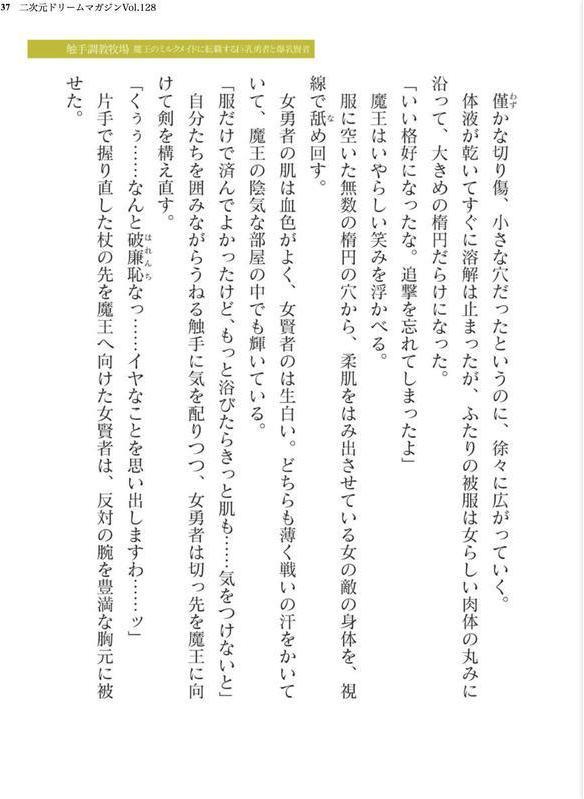 37 二次元ドリームマガジンVol.128
触手調教牧場 魔王のミルクメイドに転職する巨乳勇者と爆乳賢者
僅かな切り傷、小さな穴だったというのに、徐々に広がっていく。
わず
体液が乾いてすぐに溶解は止まったが、ふたりの被服は女らしい肉体の丸みに
沿って、大きめの楕円だらけになった。
「いい格好になったな。追撃を忘れてしまったよ」
魔王はいやらしい笑みを浮かべる。
服に空いた無数の楕円の穴から、柔肌をはみ出させている女の敵の身体を、視
線で舐め回す。
な
女勇者の肌は血色がよく、女賢者のは生白い。どちらも薄く戦いの汗をかいて
いて、魔王の陰気な部屋の中でも輝いている。
「服だけで済んでよかったけど、もっと浴びたらきっと肌も……気をつけないと」
自分たちを囲みながらうねる触手に気を配りつつ、女勇者は切っ先を魔王に向
けて剣を構え直す。
「くぅぅ……なんと破廉恥なっ……イヤなことを思い出しますわ……ッ」
はれんち
片手で握り直した杖の先を魔王へ向けた女賢者は、反対の腕を豊満な胸元に被
せた。